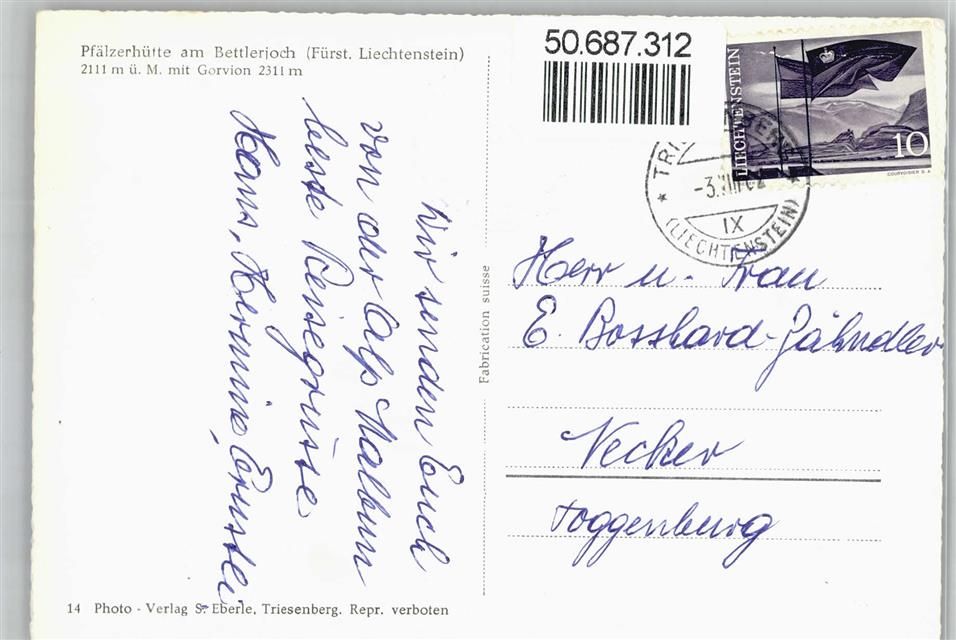 Pfälzerhütte am Bettlerjoch (Fürst. Liechtenstein)
2111 m ü. M. mit Gorvion 2311 m
Wir senden Euch
von der Alp Malbun
beste Reisegrüsse
Hans, Hermine, Ernstli
14 Photo - Verlag S. Eberle, Triesenberg. Repr. verboten
Fabrication suisse
50.687.312
LIECHTENSTEIN
10
COURVOISIER S.A.
-3.
IX
(LIECHTENSTEIN)
Herr u. Frau
E. Bosshard-Jähndler
Necker
Toggenburg